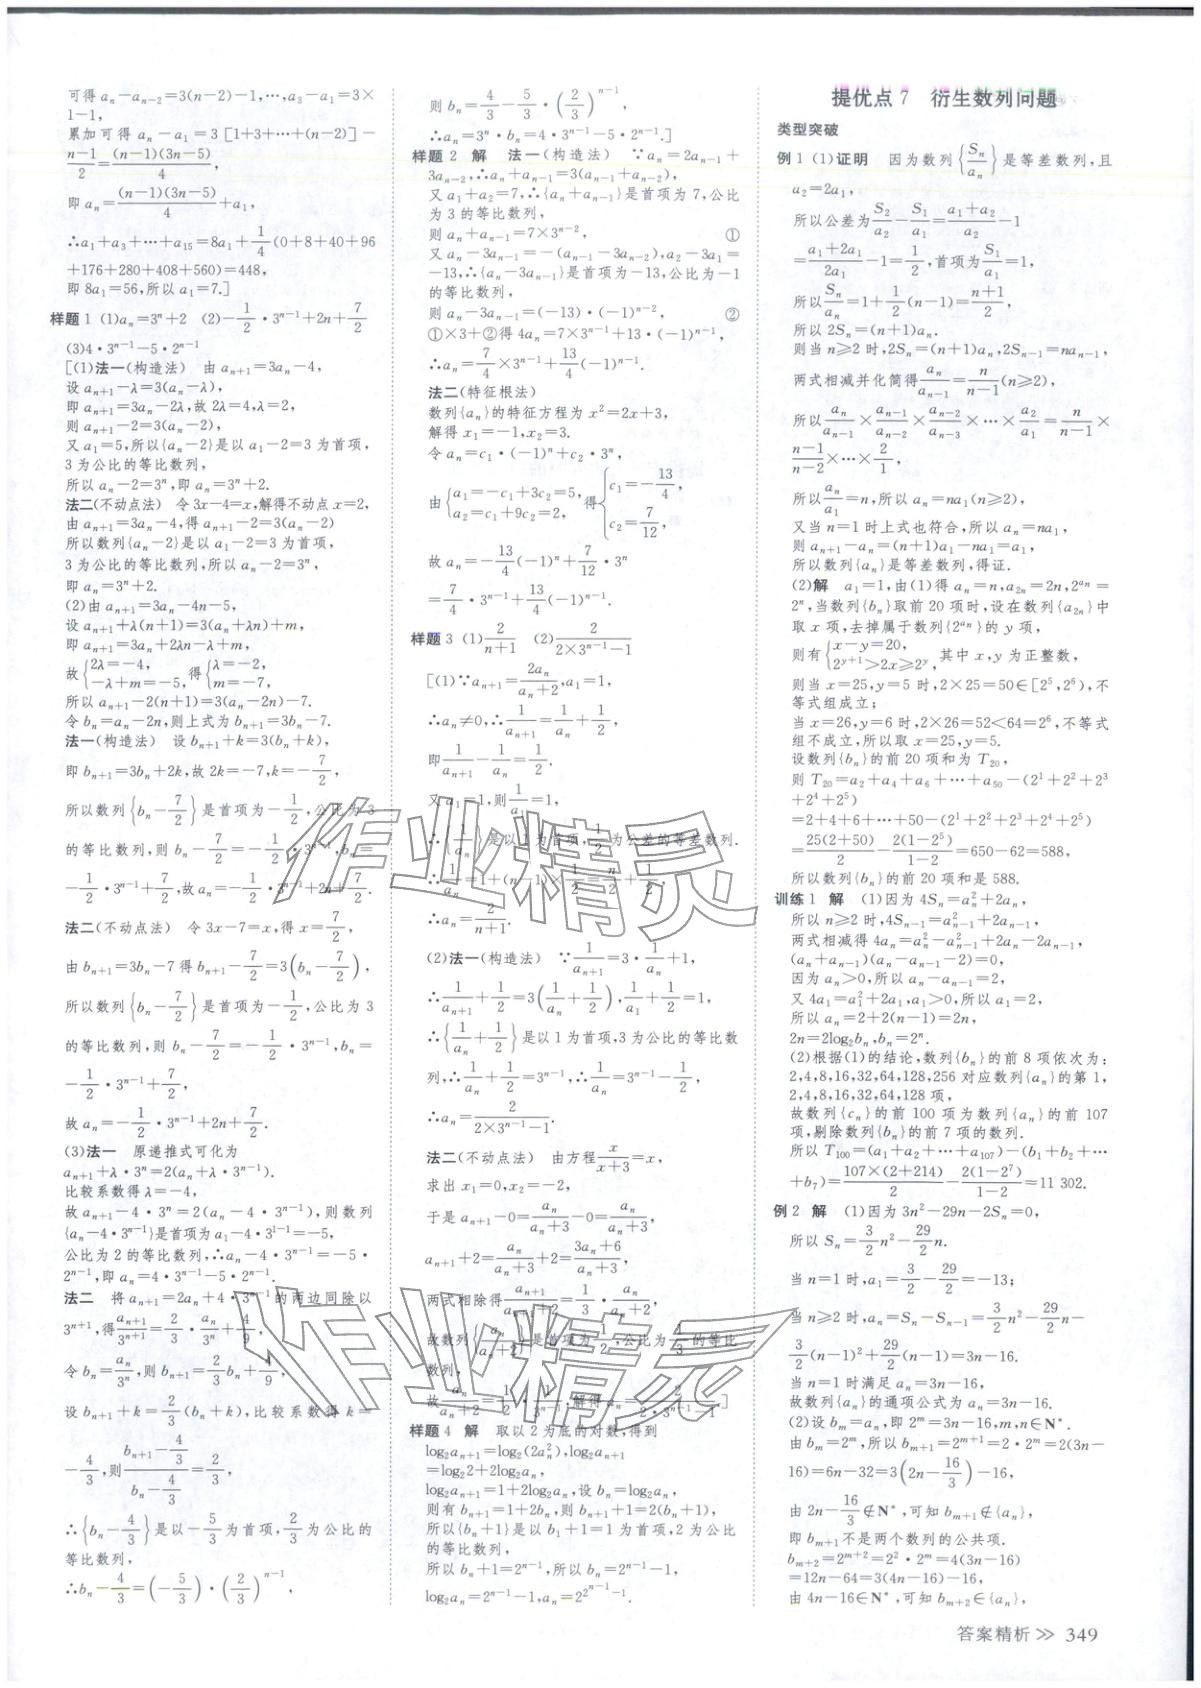 可得 aₙ−aₙ₋₂=3(n−2)−1,…,a₃−a₁=3×
1−1,
累加可得 aₙ−a₁=3[1+3+…+(n−2)]−
(n−1)/2=(n−1)(3n−5)/4,
即 aₙ=(n−1)(3n−5)/4+a₁,
∴a₁+a₃+…+a₁₅=8a₁+1/4(0+8+40+96
+176+280+408+560)=448,
即 8a₁=56,所以 a₁=7.]
样题 1 (1)aₙ=3ⁿ+2 (2)−1/2·3ⁿ⁻¹+2n+7/2
(3)4·3ⁿ⁻¹−5·2ⁿ⁻¹
[(1)法一(构造法) 由 aₙ₊₁=3aₙ−4,
设 aₙ₊₁−λ=3(aₙ−λ),
即 aₙ₊₁=3aₙ−2λ,故 2λ=4,λ=2,
则 aₙ₊₁−2=3(aₙ−2),
又 a₁=5,所以{aₙ−2}是以 a₁−2=3 为首项,
3 为公比的等比数列,
所以 aₙ−2=3ⁿ,即 aₙ=3ⁿ+2.
法二(不动点法) 令 3x−4=x,解得不动点 x=2,
由 aₙ₊₁=3aₙ−4,得 aₙ₊₁−2=3(aₙ−2)
所以数列{aₙ−2}是以 a₁−2=3 为首项,
3 为公比的等比数列,所以 aₙ−2=3ⁿ,
即 aₙ=3ⁿ+2.
(2)由 aₙ₊₁=3aₙ−4n−5,
设 aₙ₊₁+λ(n+1)=3(aₙ+λn)+m,
即 aₙ₊₁=3aₙ+2λn−λ+m,
故{2λ=−4, −λ+m=−5, 得{λ=−2, m=−7,
所以 aₙ₊₁−2(n+1)=3(aₙ−2n)−7.
令 bₙ=aₙ−2n,则上式为 bₙ₊₁=3bₙ−7.
法一(构造法) 设 bₙ₊₁+k=3(bₙ+k),
即 bₙ₊₁=3bₙ+2k,故 2k=−7,k=−7/2,
所以数列{bₙ−7/2}是首项为−1/2,公比为 3
的等比数列,则 bₙ−7/2=−1/2·3ⁿ⁻¹,bₙ=
−1/2·3ⁿ⁻¹+7/2,故 aₙ=−1/2·3ⁿ⁻¹+2n+7/2.
法二(不动点法) 令 3x−7=x,得 x=7/2,
由 bₙ₊₁=3bₙ−7 得 bₙ₊₁−7/2=3(bₙ−7/2),
所以数列{bₙ−7/2}是首项为−1/2,公比为 3
的等比数列,则 bₙ−7/2=−1/2·3ⁿ⁻¹,bₙ=
−1/2·3ⁿ⁻¹+7/2,
故 aₙ=−1/2·3ⁿ⁻¹+2n+7/2.
(3)法一 原递推式可化为
aₙ₊₁+λ·3ⁿ=2(aₙ+λ·3ⁿ⁻¹).
比较系数得 λ=−4,
故 aₙ₊₁−4·3ⁿ=2(aₙ−4·3ⁿ⁻¹),则数列
{aₙ−4·3ⁿ⁻¹}是首项为 a₁−4·3¹⁻¹=−5,
公比为 2 的等比数列,∴aₙ−4·3ⁿ⁻¹=−5·
2ⁿ⁻¹,即 aₙ=4·3ⁿ⁻¹−5·2ⁿ⁻¹.
法二 将 aₙ₊₁=2aₙ+4·3ⁿ⁻¹的两边同除以
3ⁿ⁺¹,得 aₙ₊₁/3ⁿ⁺¹=2/3·aₙ/3ⁿ+4/9,
令 bₙ=aₙ/3ⁿ,则 bₙ₊₁=2/3bₙ+4/9,
设 bₙ₊₁+k=2/3(bₙ+k),比较系数得 k=
−4/3,则(bₙ₊₁−4/3)/(bₙ−4/3)=2/3,
∴{bₙ−4/3}是以−5/3为首项,2/3为公比的
等比数列,
∴bₙ−4/3=(−5/3)·(2/3)ⁿ⁻¹,
则 bₙ=4/3−5/3·(2/3)ⁿ⁻¹,
∴aₙ=3ⁿ·bₙ=4·3ⁿ⁻¹−5·2ⁿ⁻¹.]
样题 2 解 法一(构造法) ∵aₙ=2aₙ₋₁+
3aₙ₋₂,∴aₙ+aₙ₋₁=3(aₙ₋₁+aₙ₋₂),
又 a₁+a₂=7,∴{aₙ+aₙ₋₁}是首项为 7,公比
为 3 的等比数列,
则 aₙ+aₙ₋₁=7×3ⁿ⁻², ①
又 aₙ−3aₙ₋₁=−(aₙ₋₁−3aₙ₋₂),a₂−3a₁=
−13,∴{aₙ−3aₙ₋₁}是首项为−13,公比为−1
的等比数列,
则 aₙ−3aₙ₋₁=(−13)·(−1)ⁿ⁻², ②
①×3+②得 4aₙ=7×3ⁿ⁻¹+13·(−1)ⁿ⁻¹,
∴aₙ=7/4×3ⁿ⁻¹+13/4(−1)ⁿ⁻¹.
法二(特征根法)
数列{aₙ}的特征方程为 x²=2x+3,
解得 x₁=−1,x₂=3.
令 aₙ=c₁·(−1)ⁿ+c₂·3ⁿ,
由{a₁=−c₁+3c₂=5, a₂=c₁+9c₂=2, 得{c₁=−13/4, c₂=7/12,
故 aₙ=−13/4(−1)ⁿ+7/12·3ⁿ
=7/4·3ⁿ⁻¹+13/4(−1)ⁿ⁻¹.
样题 3 (1)2/(n+1) (2)2/(2×3ⁿ⁻¹−1)
[(1)∵aₙ₊₁=2aₙ/(aₙ+2),a₁=1,
∴aₙ≠0,∴1/aₙ₊₁=1/aₙ+1/2,
即1/aₙ₊₁−1/aₙ=1/2.
又 a₁=1,则1/a₁=1,
∴{1/aₙ}是以 1 为首项,1/2为公差的等差数列.
∴1/aₙ=1+(n−1)×1/2=n/2+1/2,
∴aₙ=2/(n+1).
(2)法一(构造法) ∵1/aₙ₊₁=3·1/aₙ+1,
∴1/aₙ₊₁+1/2=3(1/aₙ+1/2),1/a₁+1/2=1,
∴{1/aₙ+1/2}是以 1 为首项,3 为公比的等比数
列,∴1/aₙ+1/2=3ⁿ⁻¹,∴1/aₙ=3ⁿ⁻¹−1/2,
∴aₙ=2/(2×3ⁿ⁻¹−1).
法二(不动点法) 由方程x/(x+3)=x,
求出 x₁=0,x₂=−2,
于是 aₙ₊₁−0=aₙ/(aₙ+3)−0=aₙ/(aₙ+3),
aₙ₊₁+2=aₙ/(aₙ+3)+2=(3aₙ+6)/(aₙ+3),
两式相除得aₙ₊₁/(aₙ₊₁+2)=1/3·aₙ/(aₙ+2),
故数列{aₙ/(aₙ+2)}是首项为 ,公比为1/3的等比
数列.
样题 4 解 取以 2 为底的对数,得到
log₂aₙ₊₁=log₂(2aₙ²),log₂aₙ₊₁
=log₂2+2log₂aₙ,
log₂aₙ₊₁=1+2log₂aₙ,设 bₙ=log₂aₙ,
则有 bₙ₊₁=1+2bₙ,则 bₙ₊₁+1=2(bₙ+1),
所以{bₙ+1}是以 b₁+1=1 为首项,2 为公比
的等比数列,
所以 bₙ+1=2ⁿ⁻¹,所以 bₙ=2ⁿ⁻¹−1,
log₂aₙ=2ⁿ⁻¹−1,aₙ=2^(2ⁿ⁻¹−1).
提优点 7 衍生数列问题
类型突破
例 1 (1)证明 因为数列{Sₙ/aₙ}是等差数列,且
a₂=2a₁,
所以公差为S₂/a₂−S₁/a₁=(a₁+a₂)/a₂−1
=(a₁+2a₁)/2a₁−1=1/2,首项为S₁/a₁=1,
所以Sₙ/aₙ=1+1/2(n−1)=(n+1)/2,
所以 2Sₙ=(n+1)aₙ.
则当 n≥2 时,2Sₙ=(n+1)aₙ,2Sₙ₋₁=naₙ₋₁,
两式相减并化简得aₙ/aₙ₋₁=n/(n−1)(n≥2),
所以aₙ/aₙ₋₁×aₙ₋₁/aₙ₋₂×aₙ₋₂/aₙ₋₃×…×a₂/a₁=n/(n−1)×
(n−1)/(n−2)×…×2/1,
所以aₙ/a₁=n,所以 aₙ=na₁(n≥2),
又当 n=1 时上式也符合,所以 aₙ=na₁,
则 aₙ₊₁−aₙ=(n+1)a₁−na₁=a₁,
所以数列{aₙ}是等差数列,得证.
(2)解 a₁=1,由(1)得 aₙ=n,a₂ₙ=2n,2^(aₙ)=
2ⁿ,当数列{bₙ}取前 20 项时,设在数列{a₂ₙ}中
取 x 项,去掉属于数列{2^(aₙ)}的 y 项,
则有{x−y=20, 2ʸ⁺¹>2x≥2ʸ, 其中 x,y 为正整数,
则当 x=25,y=5 时,2×25=50∈[2⁵,2⁶),不
等式组成立;
当 x=26,y=6 时,2×26=52<64=2⁶,不等式
组不成立,所以取 x=25,y=5.
设数列{bₙ}的前 20 项和为 T₂₀,
则 T₂₀=a₂+a₄+a₆+…+a₅₀−(2¹+2²+2³
+2⁴+2⁵)
=2+4+6+…+50−(2¹+2²+2³+2⁴+2⁵)
=25(2+50)/2−2(1−2⁵)/(1−2)=650−62=588,
所以数列{bₙ}的前 20 项和是 588.
训练 1 解 (1)因为 4Sₙ=aₙ²+2aₙ,
所以 n≥2 时,4Sₙ₋₁=aₙ₋₁²+2aₙ₋₁,
两式相减得 4aₙ=aₙ²−aₙ₋₁²+2aₙ−2aₙ₋₁,
(aₙ+aₙ₋₁)(aₙ−aₙ₋₁−2)=0,
因为 aₙ>0,所以 aₙ−aₙ₋₁=2,
又 4a₁=a₁²+2a₁,a₁>0,所以 a₁=2,
所以 aₙ=2+2(n−1)=2n,
2n=2log₂bₙ,bₙ=2ⁿ.
(2)根据(1)的结论,数列{bₙ}的前 8 项依次为:
2,4,8,16,32,64,128,256 对应数列{aₙ}的第 1,
2,4,8,16,32,64,128 项,
故数列{cₙ}的前 100 项为数列{aₙ}的前 107
项,剔除数列{bₙ}的前 7 项的数列.
所以 T₁₀₀=(a₁+a₂+…+a₁₀₇)−(b₁+b₂+…
+b₇)=107×(2+214)/2−2(1−2⁷)/(1−2)=11 302.
例 2 解 (1)因为 3n²−29n−2Sₙ=0,
所以 Sₙ=3/2n²−29/2n.
当 n=1 时,a₁=3/2−29/2=−13;
当 n≥2 时,aₙ=Sₙ−Sₙ₋₁=3/2n²−29/2n−
3/2(n−1)²+29/2(n−1)=3n−16.
当 n=1 时满足 aₙ=3n−16,
故数列{aₙ}的通项公式为 aₙ=3n−16.
(2)设 bₘ=aₙ,即 2ᵐ=3n−16,m,n∈N*.
由 bₘ=2ᵐ,所以 bₘ₊₁=2ᵐ⁺¹=2·2ᵐ=2(3n−
16)=6n−32=3(2n−16/3)−16,
由 2n−16/3∉N*,可知 bₘ₊₁∉{aₙ},
即 bₘ₊₁不是两个数列的公共项.
bₘ₊₂=2ᵐ⁺²=2²·2ᵐ=4(3n−16)
=12n−64=3(4n−16)−16,
由 4n−16∈N*,可知 bₘ₊₂∈{aₙ},
答案精析 >> 349
作业精灵
作业精灵